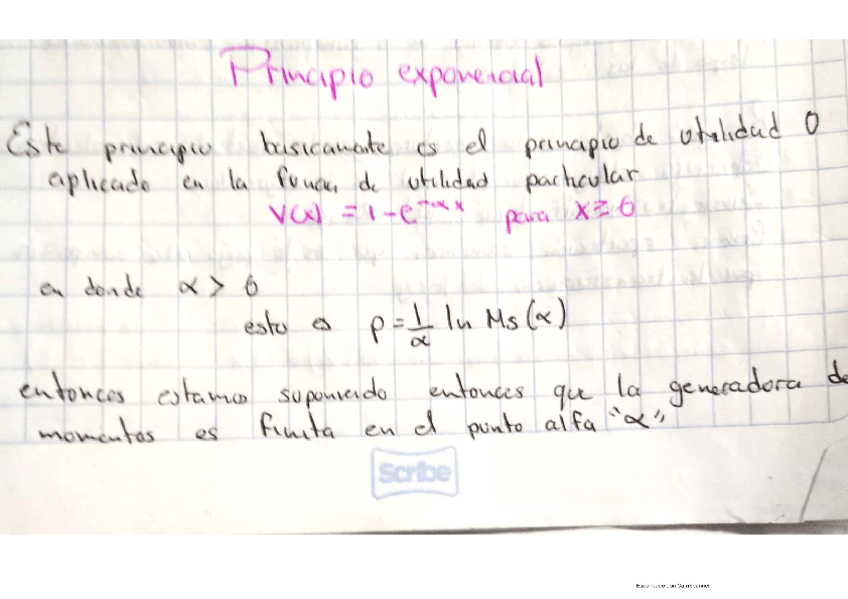 Principio exponencial
Este principio basicamente es el principio de utilidad 0
aplicado en la función de utilidad particular
v(x) = 1 - e^{-αx} para x ≥ 0
en donde α > 0
esto es p = \frac{1}{α} ln Ms(α)
entonces estamos suponiendo entonces que la generadora de
momentos es finita en el punto alfa "α"
Scribe
Escaneado con CamScanner